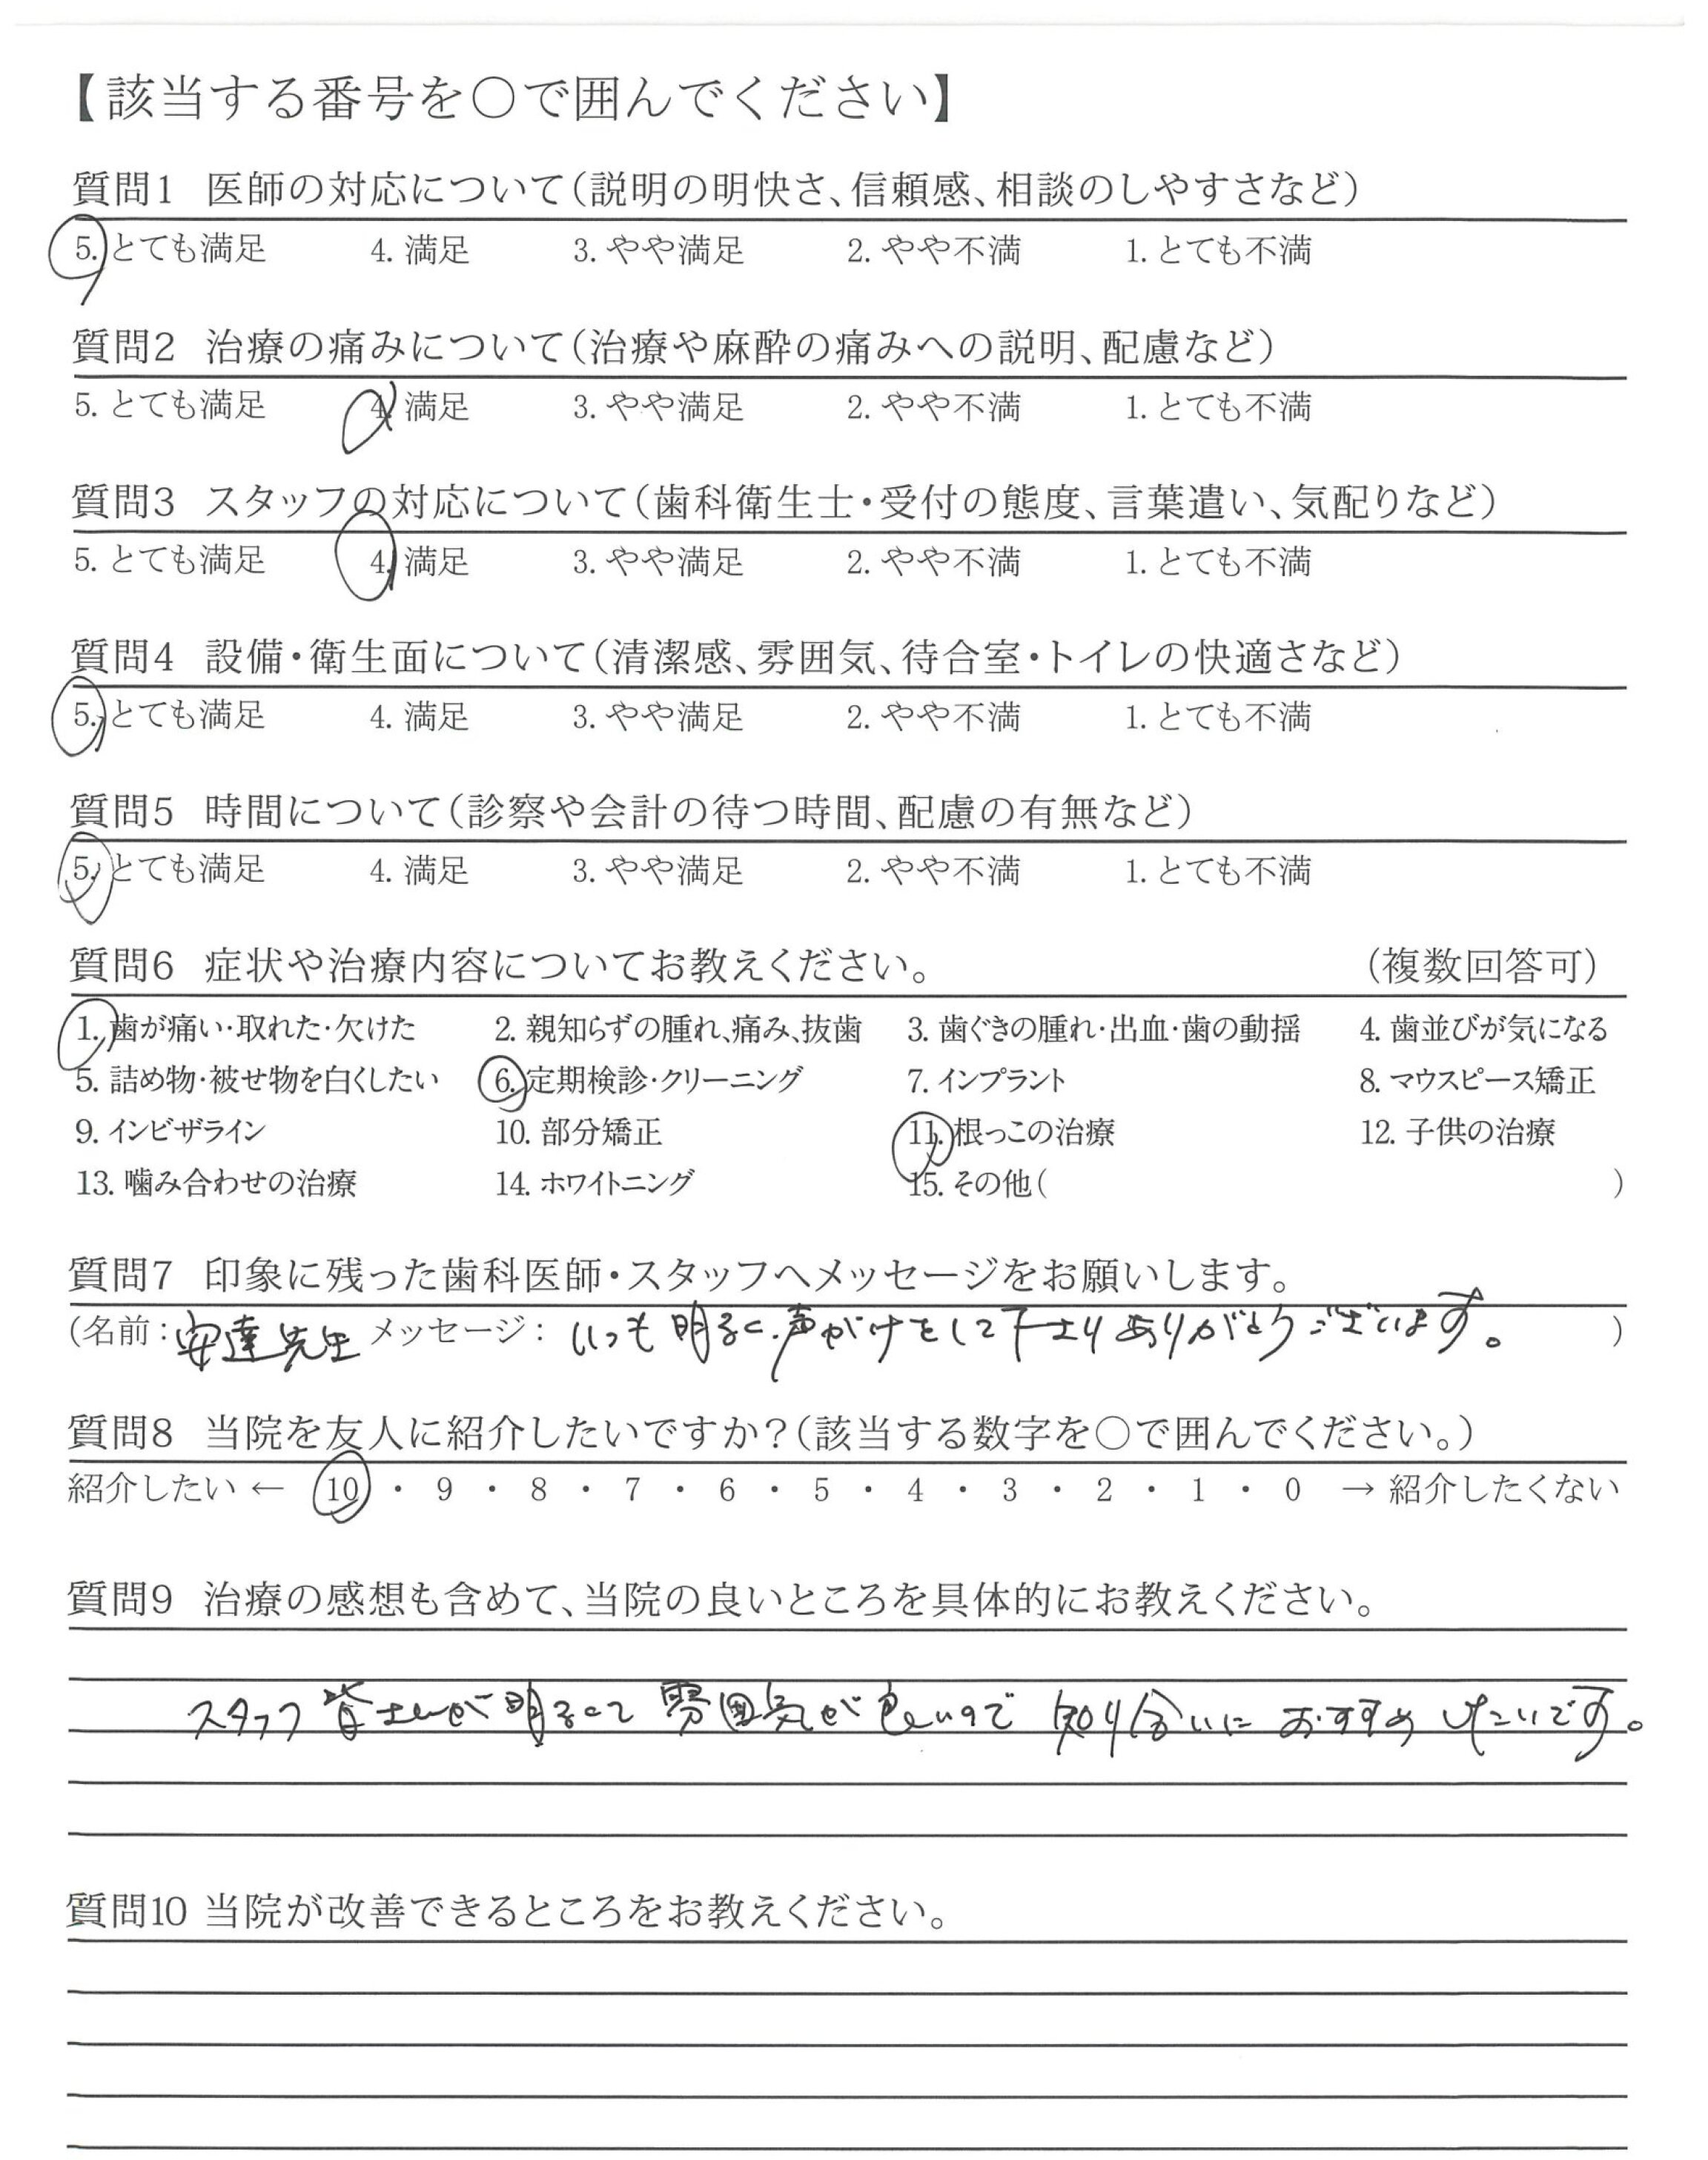 【該当する番号を○で囲んでください】
質問1 医師の対応について（説明の明快さ、信頼感、相談のしやすさなど）
5. とても満足 4. 満足 3. やや満足 2. やや不満 1. とても不満
質問2 治療の痛みについて（治療や麻酔の痛みへの説明、配慮など）
5. とても満足 4. 満足 3. やや満足 2. やや不満 1. とても不満
質問3 スタッフの対応について（歯科衛生士・受付の態度、言葉遣い、気配りなど）
5. とても満足 4. 満足 3. やや満足 2. やや不満 1. とても不満
質問4 設備・衛生面について（清潔感、雰囲気、待合室・トイレの快適さなど）
5. とても満足 4. 満足 3. やや満足 2. やや不満 1. とても不満
質問5 時間について（診察や会計の待つ時間、配慮の有無など）
5. とても満足 4. 満足 3. やや満足 2. やや不満 1. とても不満
質問6 症状や治療内容についてお教えください。 （複数回答可）
1. 歯が痛い・取れた・欠けた 2. 親知らずの腫れ、痛み、抜歯 3. 歯ぐきの腫れ・出血・歯の動揺 4. 歯並びが気になる
5. 詰め物・被せ物を白くしたい 6. 定期検診・クリーニング 7. インプラント 8. マウスピース矯正
9. インビザライン 10. 部分矯正 11. 根っこの治療 12. 子供の治療
13. 噛み合わせの治療 14. ホワイトニング 15. その他（ ）
質問7 印象に残った歯科医師・スタッフへメッセージをお願いします。
（名前：安達先生 メッセージ：いつも明るく声がけをして下さりありがとうございます。 ）
質問8 当院を友人に紹介したいですか？（該当する数字を○で囲んでください。）
紹介したい ← 10 ・ 9 ・ 8 ・ 7 ・ 6 ・ 5 ・ 4 ・ 3 ・ 2 ・ 1 ・ 0 → 紹介したくない
質問9 治療の感想も含めて、当院の良いところを具体的にお教えください。
スタッフ皆さんが明るくて雰囲気が良いので知り合いにおすすめしたいです。
質問10 当院が改善できるところをお教えください。